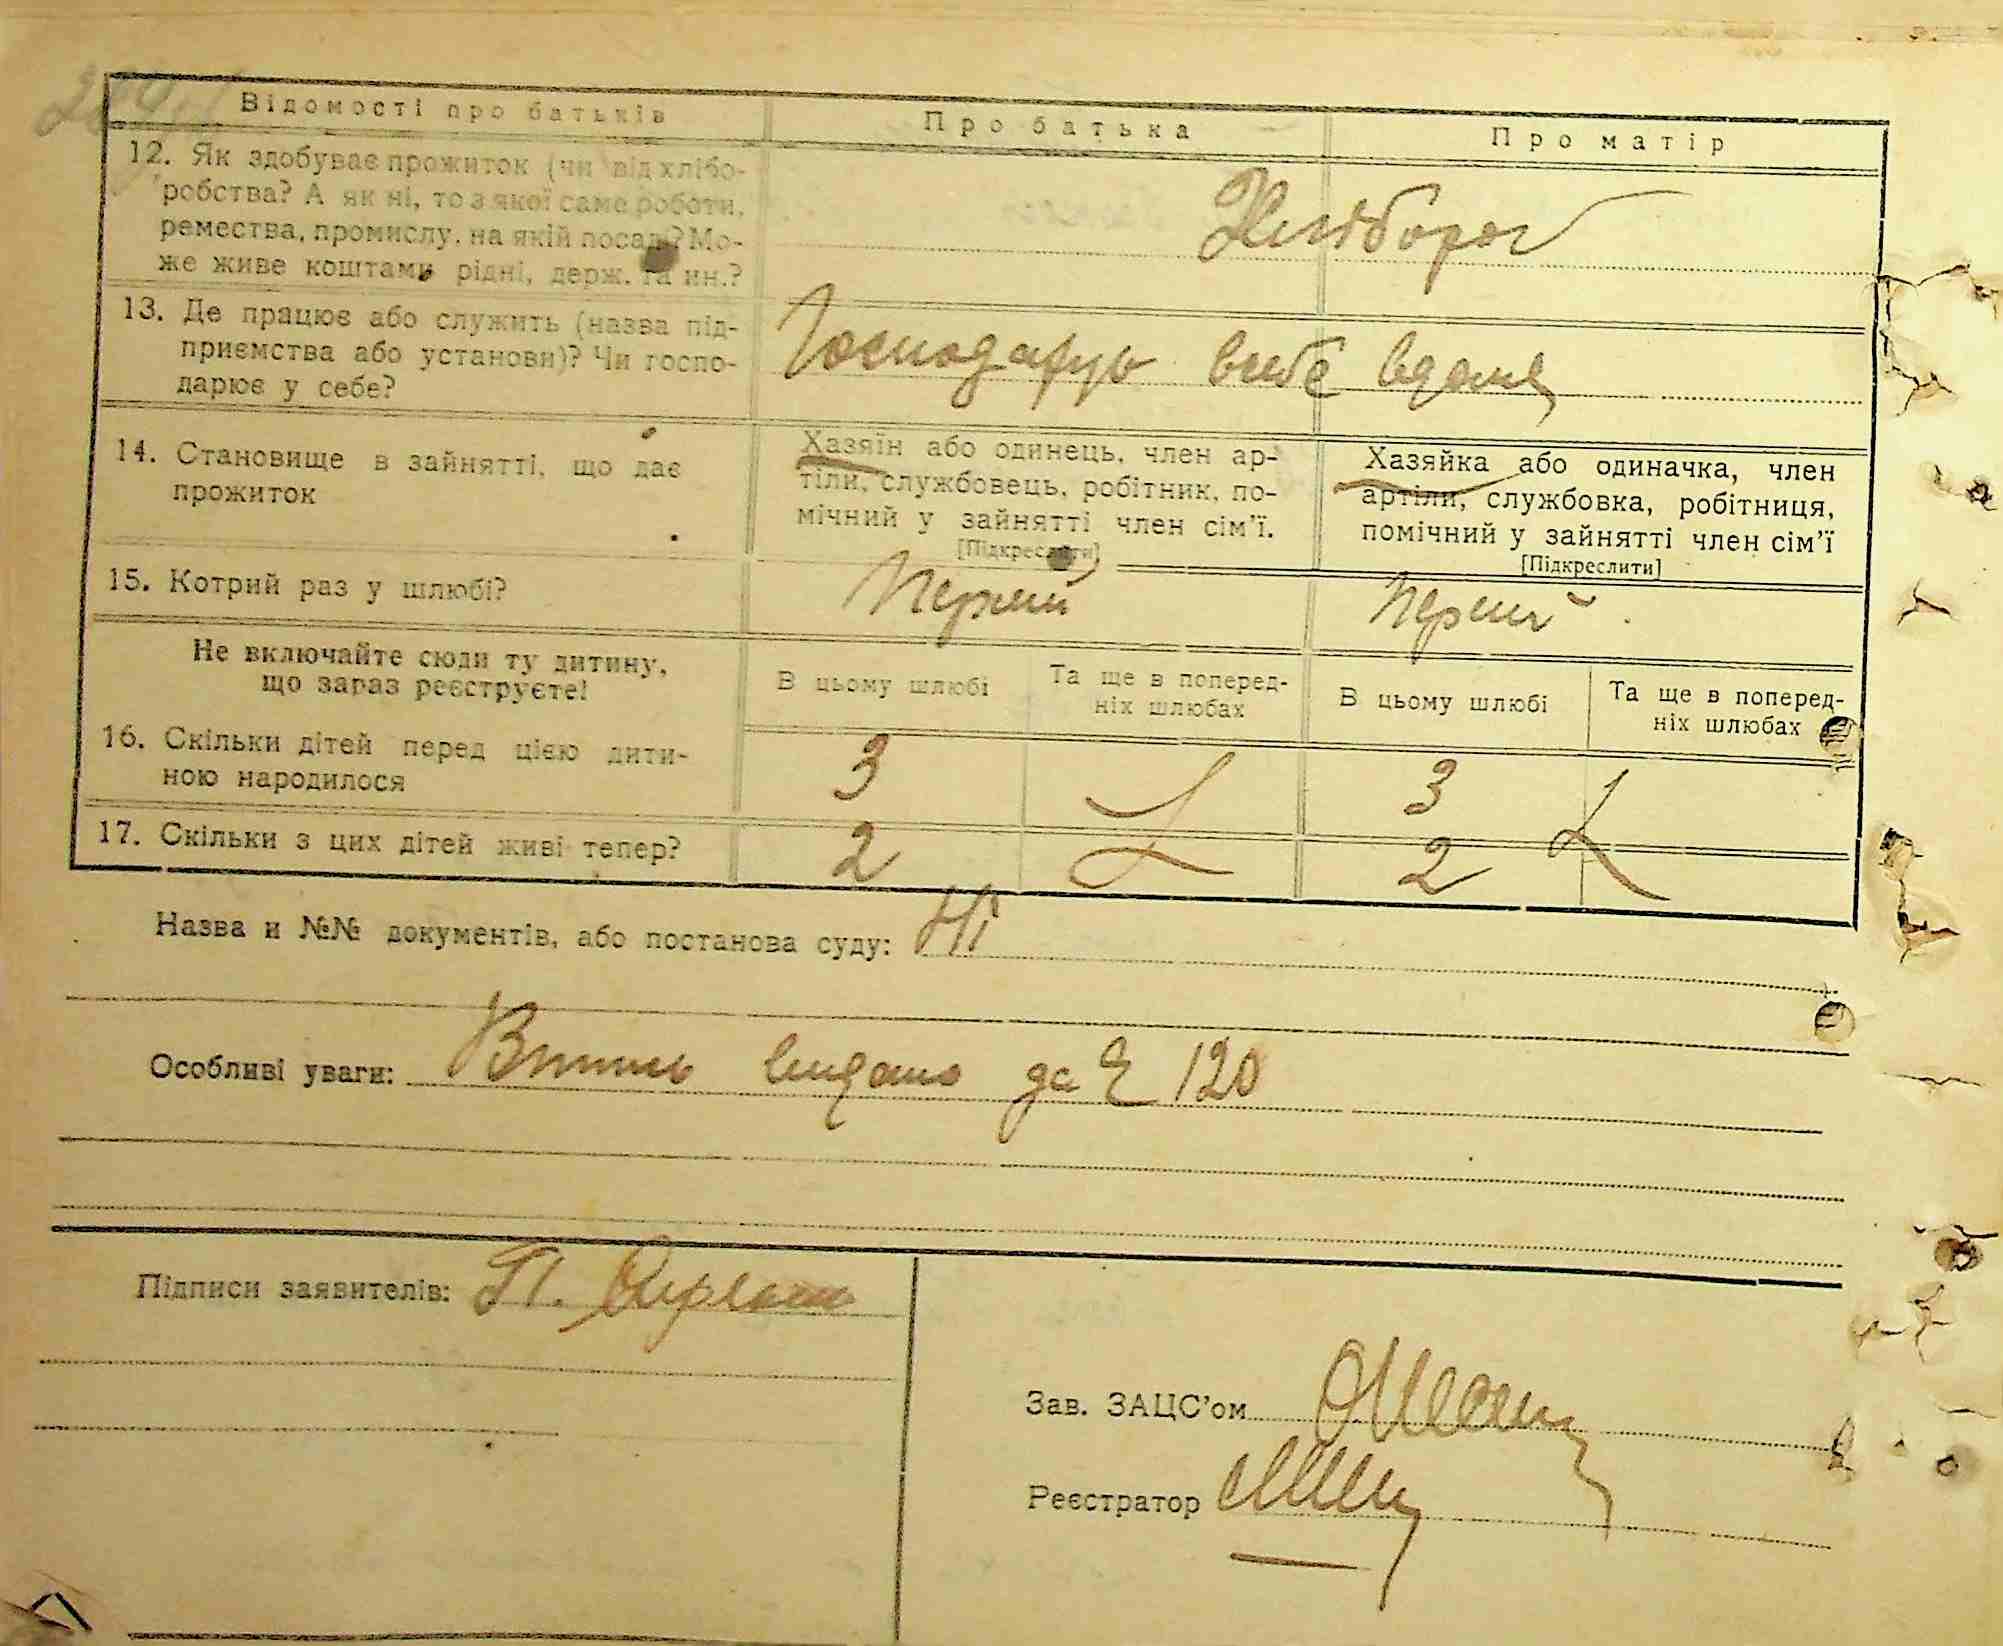 Відомості про батьків
Про батька
Про матір
12. Як здобуває прожиток (чи від хлібо-
робства? А як ні, то з якої саме роботи,
ремества, промислу, на якій посаді? Мо-
же живе коштами рідні, держ. та ин.?
Хлібороб
13. Де працює або служить (назва під-
приємства або установи)? Чи госпо-
дарює у себе?
Господарує всебе вдома
14. Становище в зайнятті, що дає
прожиток
Хазяїн або одинець, член ар-
тіли, службовець, робітник, по-
мічний у зайнятті член сім'ї.
[Підкреслити]
Хазяйка або одиначка, член
артіли, службовка, робітниця,
помічний у зайнятті член сім'ї
[Підкреслити]
15. Котрий раз у шлюбі?
Перший
Перший
Не включайте сюди ту дитину,
що зараз реєструєте!
В цьому шлюбі
Та ще в поперед-
ніх шлюбах
В цьому шлюбі
Та ще в поперед-
ніх шлюбах
16. Скільки дітей перед цією дити-
ною народилося
3
3
17. Скільки з цих дітей живі тепер?
2
2
Назва и №№ документів, або постанова суду: Ні
Особливі уваги: видано за 120
Підписи заявителів: П.
Зав. ЗАЦС'ом
Реєстратор